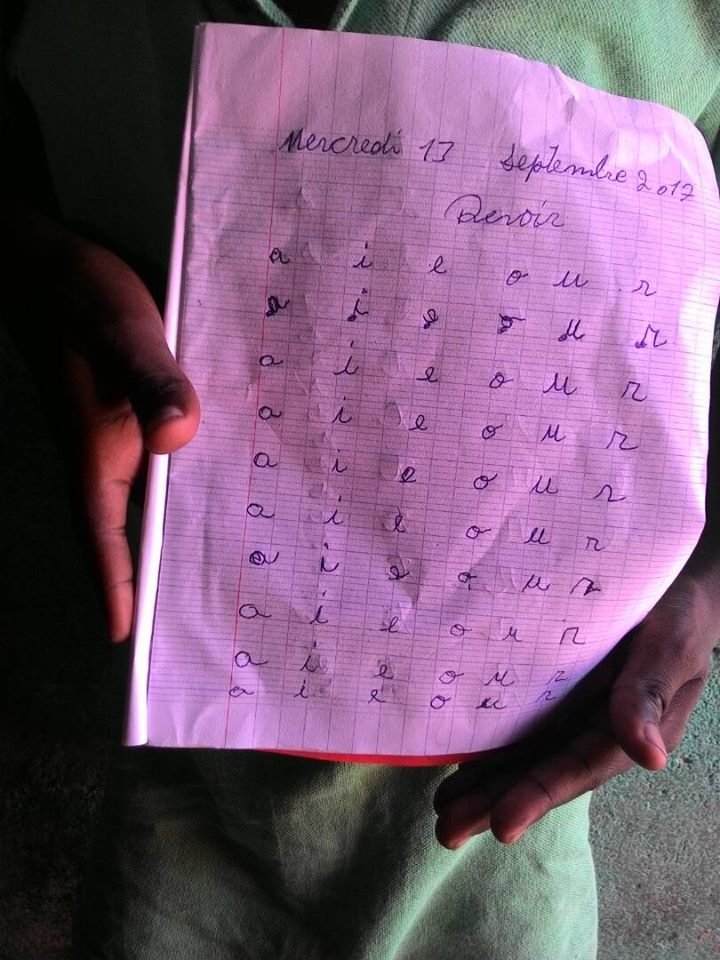 Mercredi 13 Septembre 2017
Devoir
a i e o u r
a i e o u r
a i e o u r
a i e o u r
a i e o u r
a i e o u r
a i e o u r
a i e o u r
a i e o u r
a i e o u r